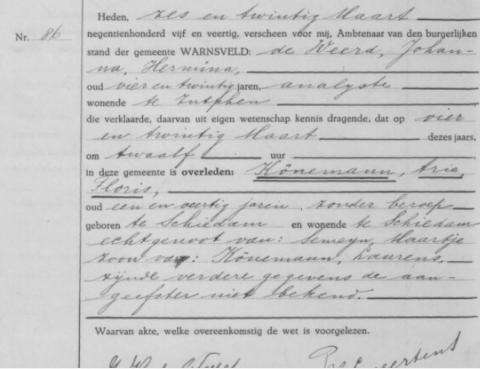 Heden, zes en twintig Maart
Nr. 86 negentienhonderd vijf en veertig, verscheen voor mij, Ambtenaar van den burgerlijken
stand der gemeente WARNSVELD: de Weerd, Johan-
na, Hermina,
oud vier en twintig jaren, analyste
wonende te Zutphen
die verklaarde, daarvan uit eigen wetenschap kennis dragende, dat op vier
en twintig Maart dezes jaars,
om twaalf uur
in deze gemeente is overleden: Könemann, Arie,
Floris,
oud een en veertig jaren, zonder beroep
geboren te Schiedam en wonende te Schiedam
echtgenoot van: Maartje
zoon van: Könemann, Laurens.
zijnde verdere gegevens de aan-
geefster niet bekend.
Waarvan akte, welke overeenkomstig de wet is voorgelezen.